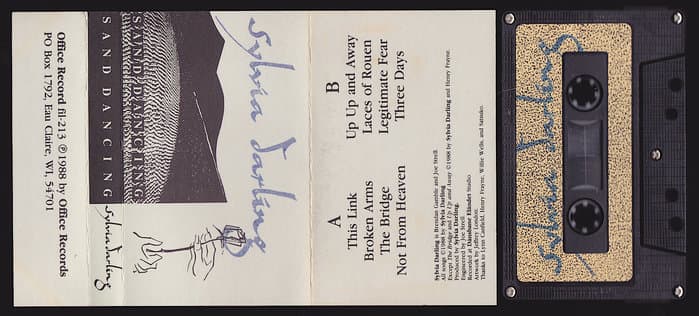 Office Record fil-213 ℗ 1988 by Office Records
PO Box 1792 Eau Claire, WI, 54701
SAND DANCING
SAND DANCING
sylvia darling
sylvia darling
A
This Link
Broken Arms
The Bridge
Not From Heaven
B
Up Up and Away
Laces of Rouen
Legitimate Fear
Three Days
Sylvia Darling is Brendan Gamble and Joe Strell.
All songs ©1988 by Sylvia Darling
Except The Bridge and Up Up and Away ©1988 by Sylvia Darling and Henry Frayne.
Produced by Sylvia Darling.
Engineered by Joe Strell.
Recorded at Diamhane Elåndet Studio
Artwork by Jeffrey London.
Thanks to Lynn Canfield, Henry Frayne, Willie Wells, and
sylvia darling